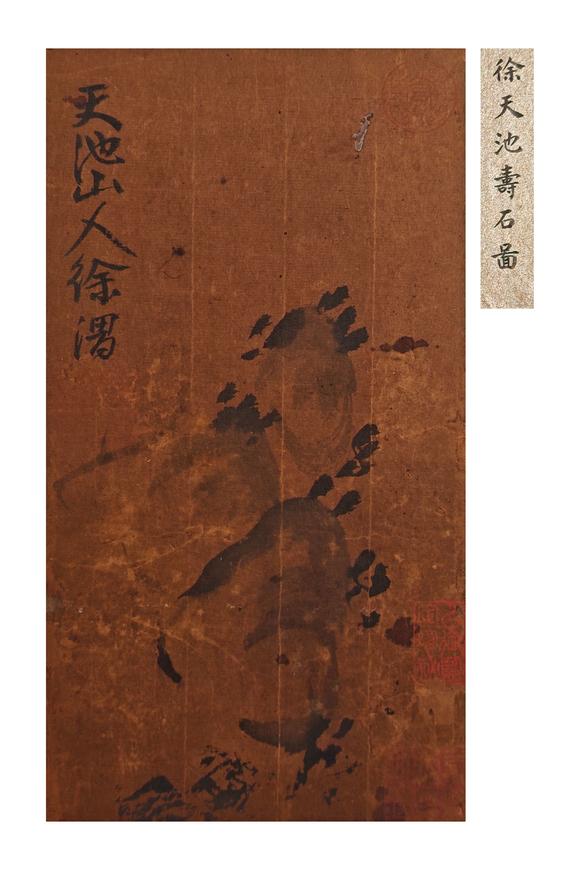 徐天池壽石圖
天池山人徐渭